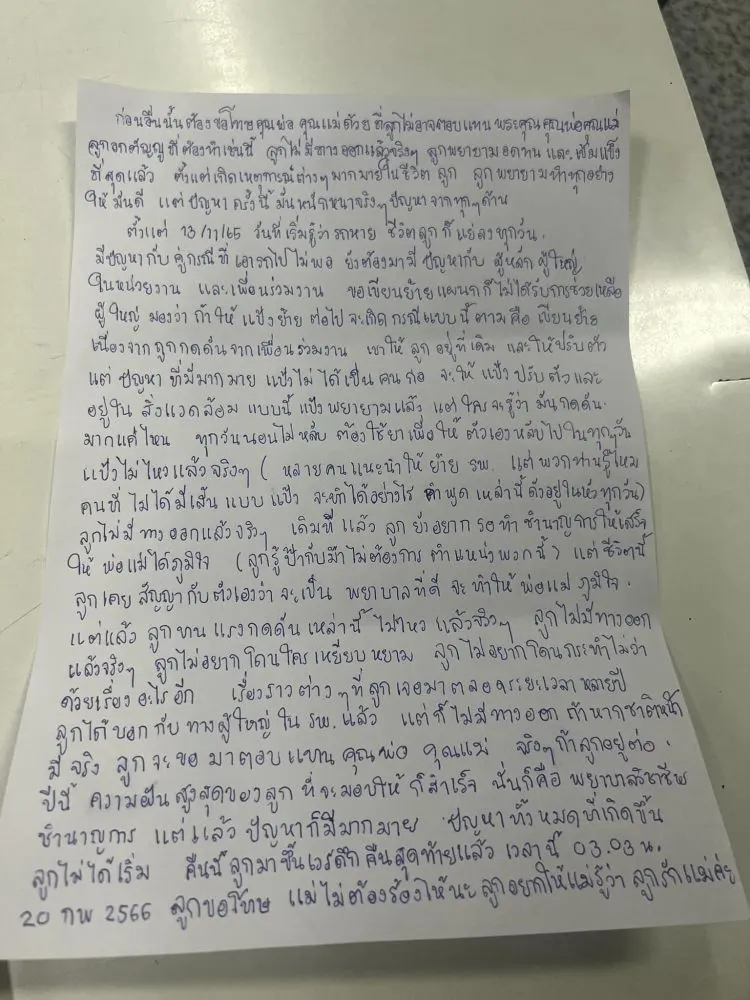 ก่อนอื่นนั้นต้องขอโทษคุณพ่อ คุณแม่ด้วย ที่ลูกไม่อาจตอบแทน พระคุณคุณพ่อคุณแม่
ลูกอกตัญญูที่ต้องทำเช่นนี้ ลูกไม่มีทางออกแล้วจริงๆ ลูกพยายามอดทน และ เข้มแข็ง
ที่สุดแล้ว ตั้งแต่เกิดเหตุการณ์ต่างๆมากมายในชีวิต ลูก ลูกพยายามทำทุกอย่าง
ให้ มันดี แต่ ปัญหา ครั้งนี้ มันหนักหนาจริงๆ ปัญหาจากทุกๆด้าน
ตั้งแต่ 13/11/65 วันที่เริ่มรู้ว่ารถหาย ชีวิตลูกก็แย่ลงทุกวัน.
มีปัญหากับ คู่กรณีที่ เอารถไป ไม่พอ ยังต้องมามี ปัญหากับ ผู้หลักผู้ใหญ่
ในหน่วยงาน และเพื่อนร่วมงาน ขอเขียนย้ายแผนกก็ไม่ได้รับการช่วยเหลือ
ผู้ใหญ่ มองว่า ถ้าให้ แป้งย้าย ต่อไปจะเกิด กรณีแบบนี้ตามคือ เขียนย้าย
เนื่องจาก ถูกกดดันจากเพื่อนร่วมงาน เขาให้ ลูก อยู่ที่เดิม และให้ปรับตัว
แต่ ปัญหา ที่มีมากมาย แป้งไม่ ได้เป็น คนก่อ จะให้ แป้งปรับตัวและ
อยู่ใน สิ่งแวดล้อม แบบนี้ แป้งพยายามแล้ว แต่ใครจะรู้ว่า มันกดดัน.
มากแค่ไหน ทุกวันนอนไม่หลับ ต้องใช้ยาเพื่อให้ ตัวเองหลับไปในทุกๆวัน
แป้งไม่ไหวแล้วจริงๆ ( หลายคนแนะนำให้ ย้าย รพ. แต่พวกท่านรู้ไหม
คนที่ ไม่ได้มีเส้น แบบ แป้ง จะทำได้อย่างไร คำพูด เหล่านี้ ดังอยู่ในหัวทุกวัน)
ลูกไม่มีทางออกแล้วจริงๆ เดิมที แล้ว ลูก ยังอยาก รอ ทำ ชำนาญการให้เสร็จ
ให้ พ่อแม่ได้ภูมิใจ (ลูกรู้ ป๊ากับม๊าไม่ต้องการ ตำแหน่งพวกนี้) แต่ ชีวิตนี้
ลูกเคย สัญญากับตัวเองว่า จะเป็น พยาบาลที่ดี จะ ทำให้ พ่อแม่ ภูมิใจ.
แต่แล้ว ลูกทนแรงกดดัน เหล่านี้ ไม่ไหว แล้วจริงๆ ลูกไม่มีทางออก
แล้วจริงๆ ลูกไม่อยากโดนใครเหยียบหยาม ลูกไม่อยากโดนกระทำไม่ว่า
ด้วยเรื่องอะไรอีก เรื่องราวต่างๆที่ลูกเจอมาตลอดระยะเวลา หลายปี
ลูกได้บอกกับ ทางผู้ใหญ่ใน รพ. แล้ว แต่ก็ไม่มีทางออก ถ้าหากชาติหน้า
มี จริง ลูกจะขอ มาตอบแทน คุณพ่อ คุณแม่ จริงๆ ถ้าลูกอยู่ต่อ.
ปีนี้ ความฝันสูงสุดของลูก ที่จะมอบให้ ก็สำเร็จ นั่นก็คือ พยาบาลวิชาชีพ
ชำนาญการ แต่แล้ว ปัญหาก็มีมากมาย ปัญหา ทั้งหมดที่เกิดขึ้น
ลูกไม่ได้เริ่ม คืนนี้ ลูกมาขึ้นเวรดึก คืนสุดท้ายแล้ว เวลานี้ 03.03 น.
20 กพ 2566 ลูกขอโทษ แม่ไม่ต้องร้องไห้นะ ลูกอยากให้แม่รู้ว่า ลูกรักแม่ค่ะ